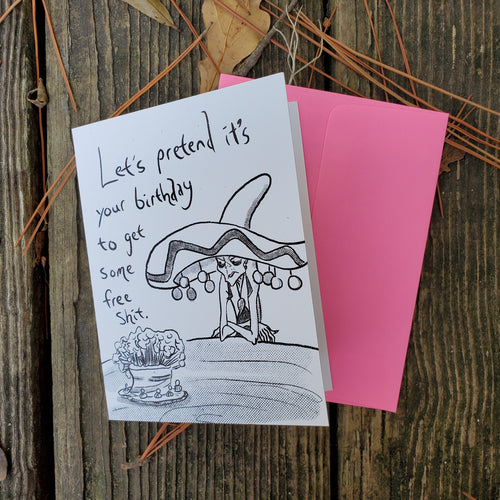 Let's pretend it's
your birthday
to get
some
free
shit.